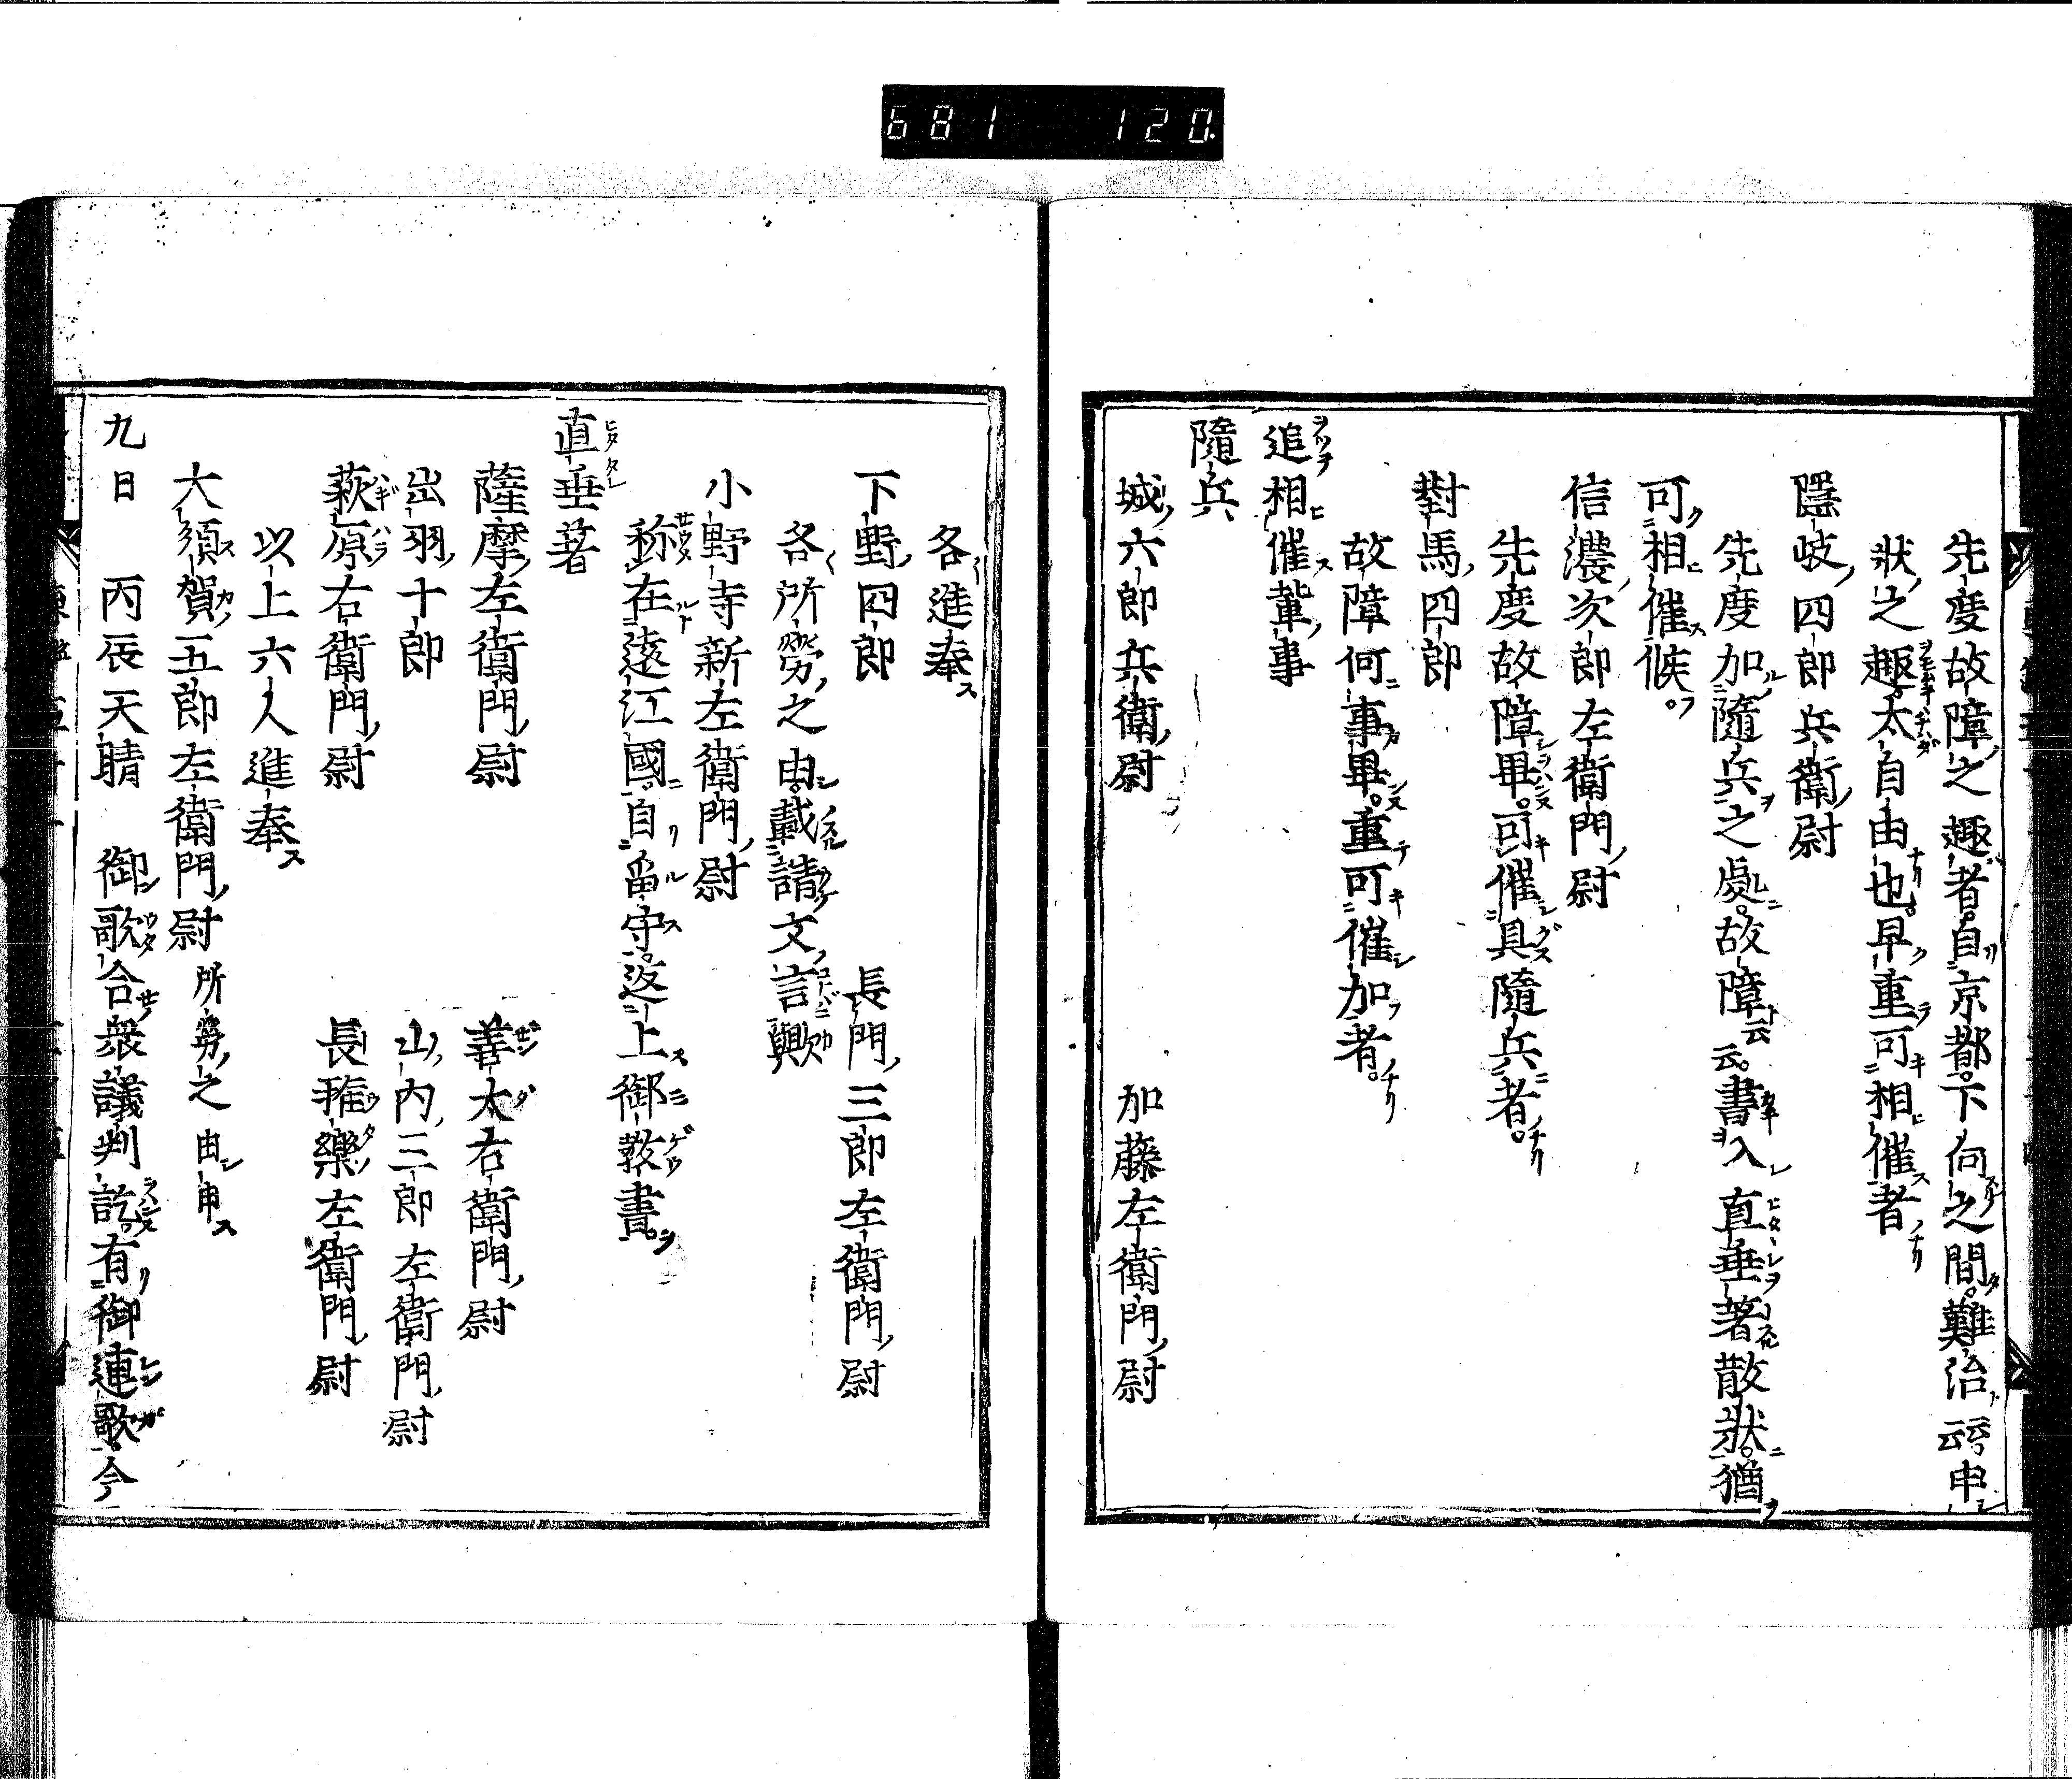 681 120
先度故障之趣者。自京都。下向之間。難治云云。申
狀之趣。太自由也。早重可相催者
隱岐四郎兵衛尉
先度加隨兵之處。故障云云。書入直垂著散狀。猶
可相催候。
信濃次郎左衛門尉
先度故障畢。可催具隨兵者。
對馬四郎
故障何事畢。重可催加者。
追相催輩事
隨兵
城六郎兵衛尉 加藤左衛門尉
各進奉
下野四郎 長門三郎左衛門尉
各所勞之由。載請文言歟
小野寺新左衛門尉
稱在遠江國。自畱守。返上御敎書。
直垂著
薩摩左衛門尉 善太右衛門尉
出羽十郎 山內三郎左衛門尉
萩原右衛門尉 長雅樂左衛門尉
以上六人進奉
大須賀五郎左衛門尉 所勞之由申
九日 丙辰天晴 御歌合衆議判訖。有御連歌。今